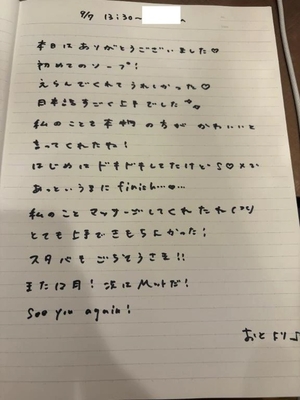 9/7 13:30〜
本日はありがとうございました♡
初めてのソープ!
えらんでくれてうれしかった♡
日本語すごく上手でした
私のことを本物の方がかわいいと
言ってくれたね!
はじめはドキドキしてたけど
あっというまにfinish…♡…
私のことマッサージしてくれたね
とても上手できもちよかった!
スタバもごちそうさま!!
また12月!次はMattだ!
see you again!
おとより